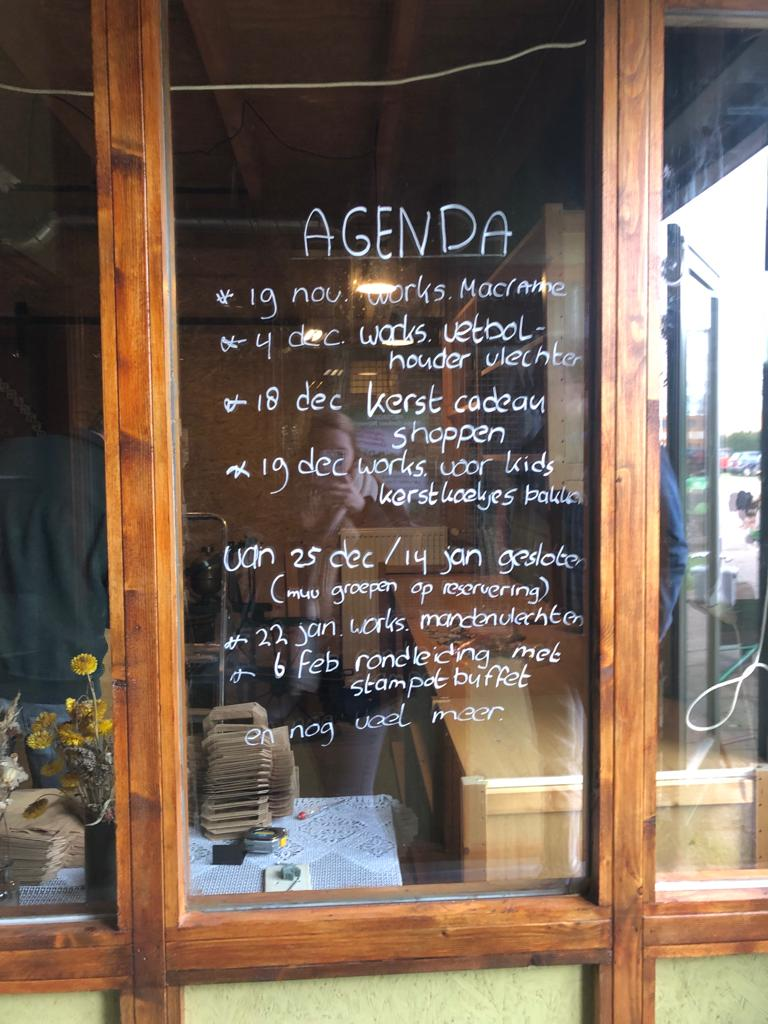 AGENDA
* 19 nov. works. Macrame
* 4 dec. works. vetbol-
houder vlechten
* 18 dec kerst cadeau
shoppen
* 19 dec works. voor kids
kerstkoekjes bakken
van 25 dec / 14 jan gesloten
(muv groepen op reservering)
* 22 jan. works. mandenvlechten
* 6 feb rondleiding met
stampotbuffet
en nog veel meer.